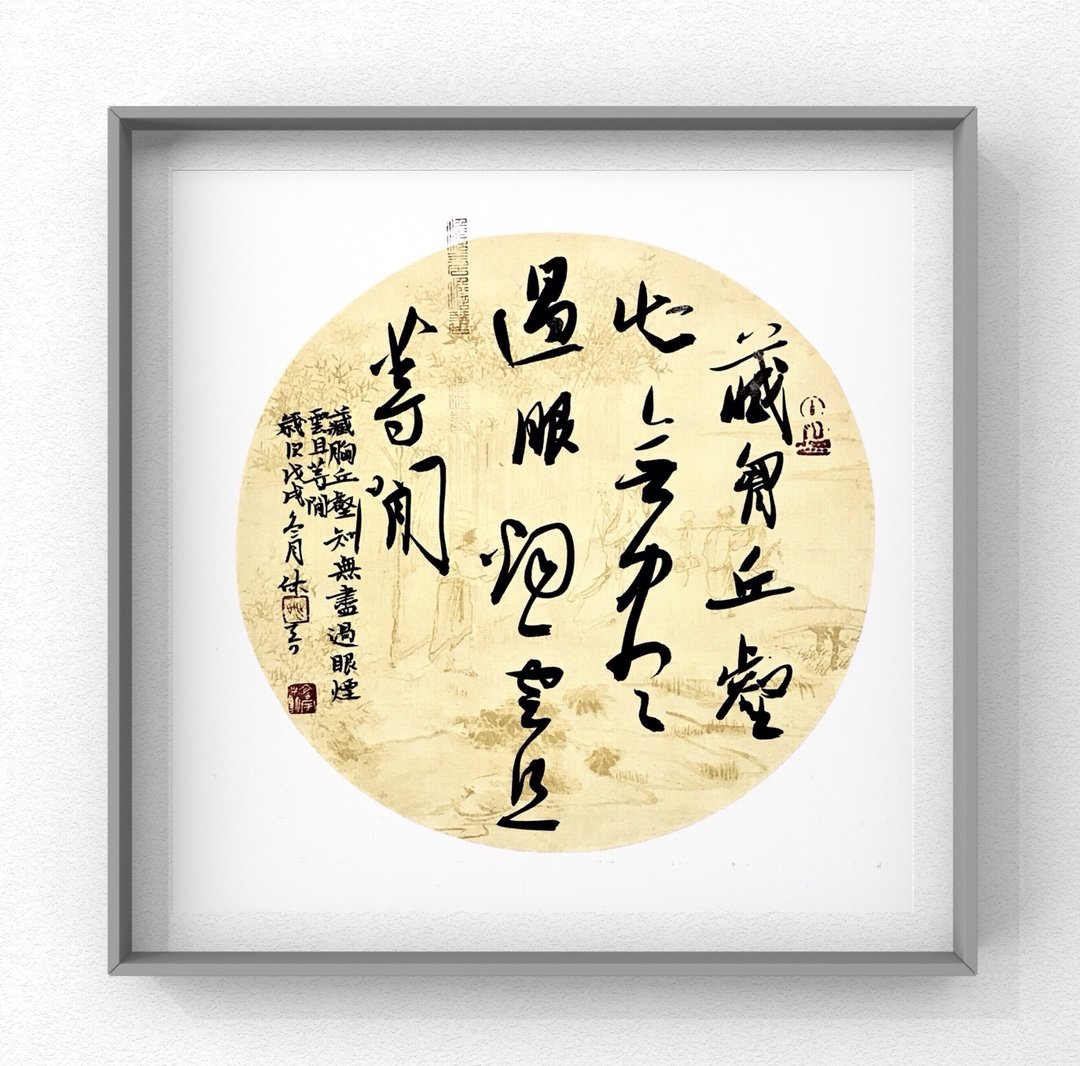 藏胸丘壑
知無盡
過眼煙雲且
等閒
藏胸丘壑知無盡過眼煙
雲且等閒
歲次戊戌冬月休